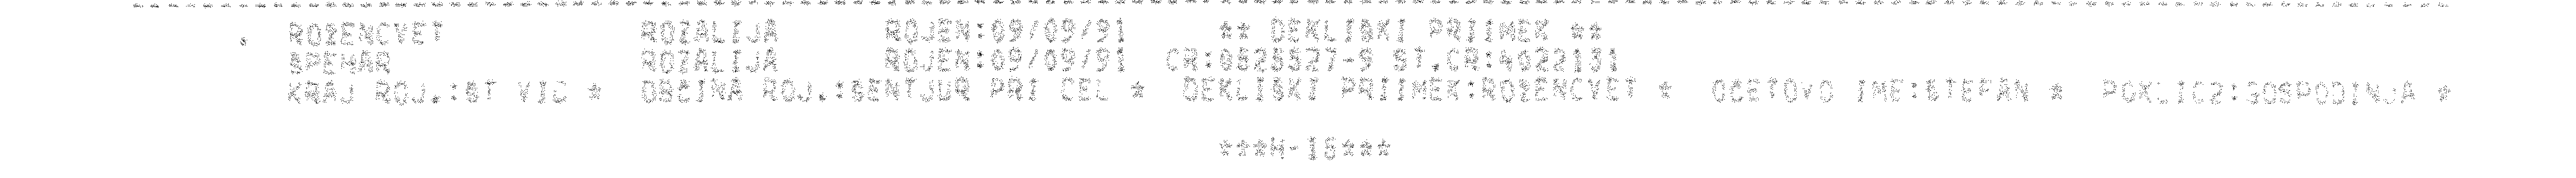 ROZENCVET ROZALIJA ROJEN:09/09/91 ** DEKLISKI PRIIMEK **
SPEHAR ROZALIJA ROJEN:09/09/91 CR:0525527-9 ST.CR:4022131
KRAJ ROJ.:ST VID * OBCINA ROJ.:SENTJUR PRI CEL * DEKLISKI PRIIMEK:ROZENCVET * OCETOVO IME:STEFAN * POKLIC2:GOSPODINJA *
***H-15***